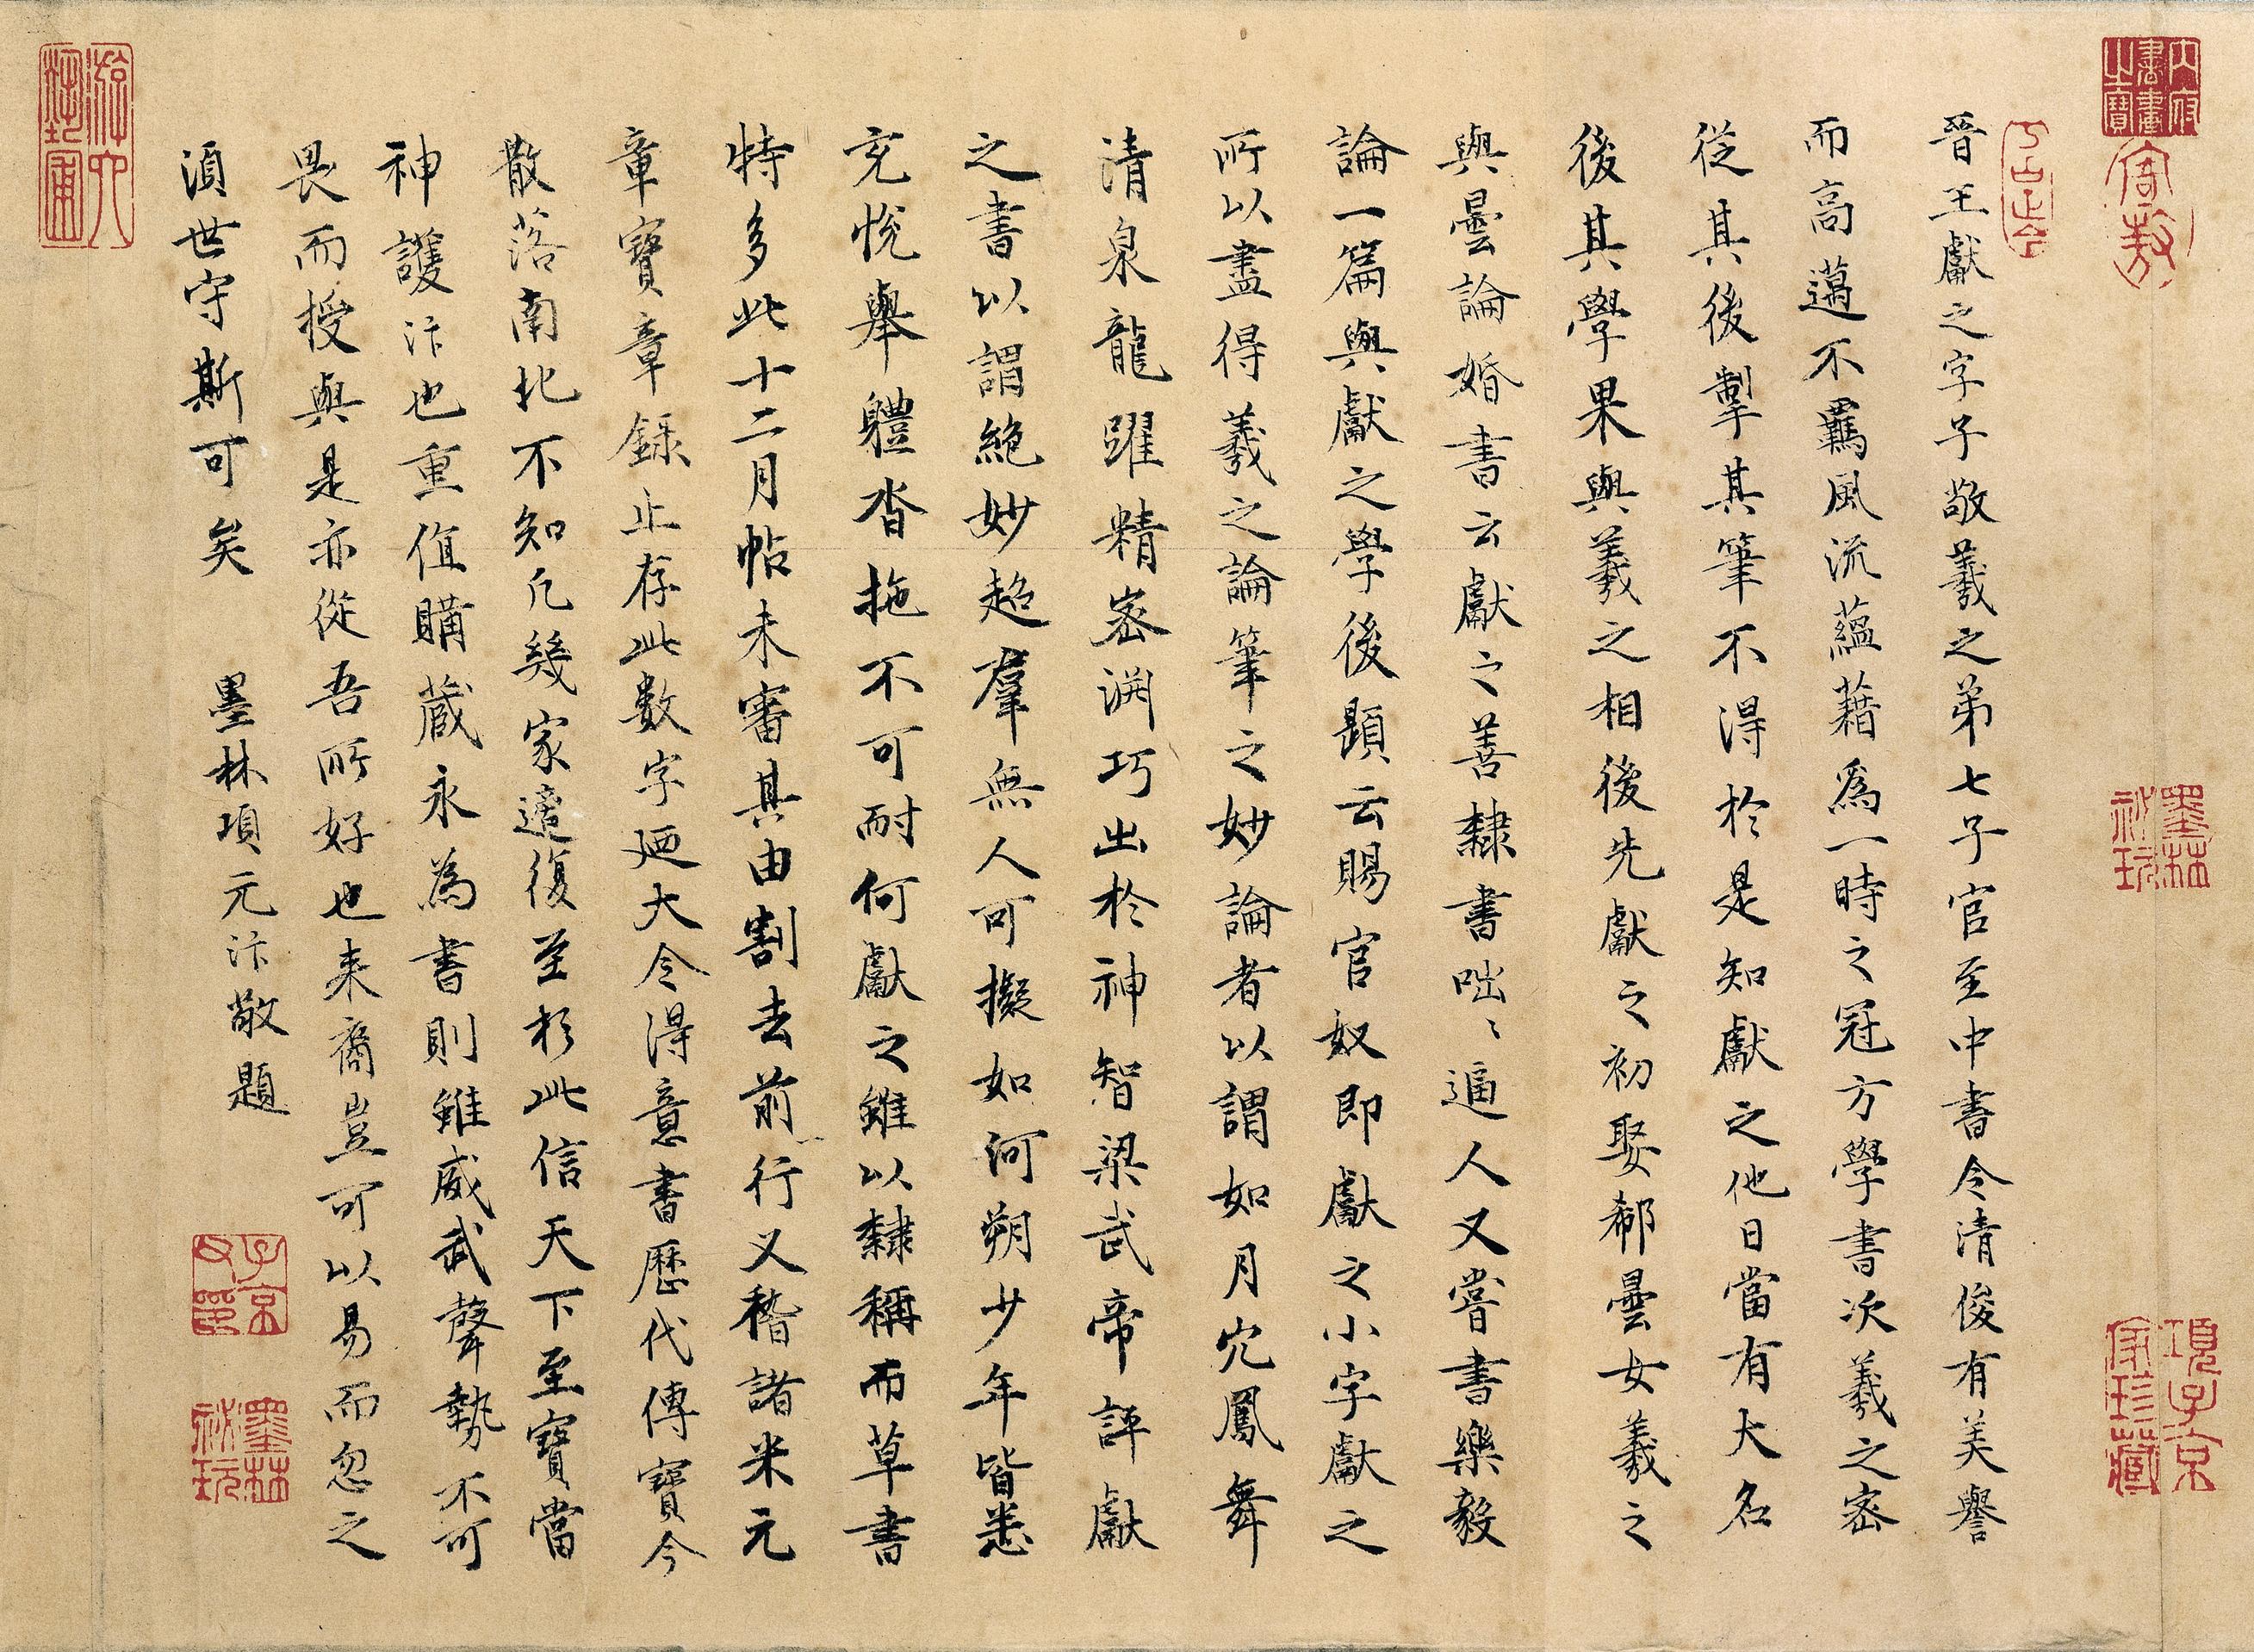 晉王獻之字子敬羲之弟七子官至中書令清俊有美譽
而高邁不羈風流蘊藉爲一時之冠方學書次羲之密
從其後掣其筆不得於是知獻之他日當有大名
後其學果與羲之相後先獻之初娶郗曇女羲之
與曇論婚書云獻之善隸書咄〻逼人又嘗書樂毅
論一篇與獻之學後題云賜官奴即獻之小字獻之
所以盡得羲之論筆之妙論者以謂如月穴鳳舞
清泉龍躍精密淵巧出於神智梁武帝評獻
之書以謂絶妙超羣無人可擬如河朔少年皆悉
充悅舉體沓拖不可耐何獻之雖以隸稱而草書
特多此十二月帖未審其由割去前行又稽諸米元
章寶章錄止存此數字廼大令得意書歷代傳寶今
散落南北不知凡幾家遶復至於此信天下至寶當
神護汴也重值購藏永為書則雖威武聲勢不可
畏而授與是亦從吾所好也来裔豈可以易而忽之
湏世守斯可矣 墨林項元汴敬題
內府書畫之寶
寄敖
墨林祕玩
項子京家珍藏
子京父印
墨林祕玩